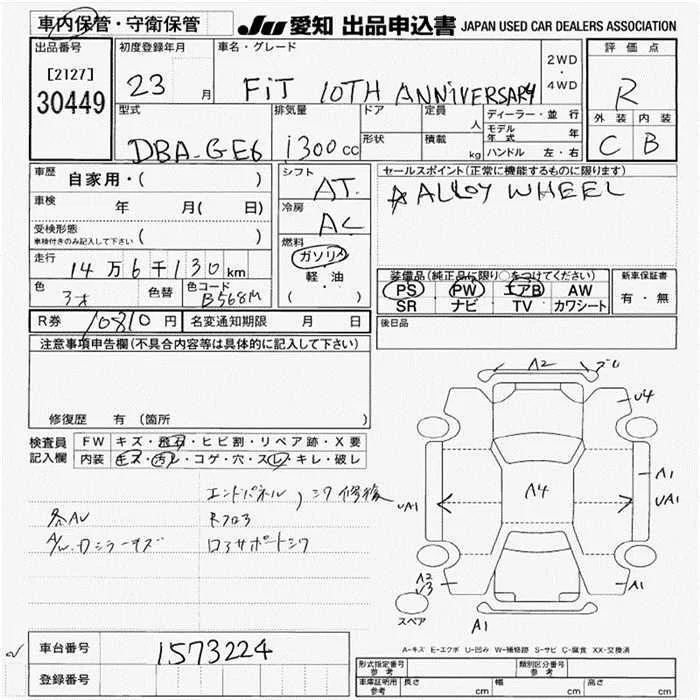 車内保管・守衛保管 JU 愛知 出品申込書 JAPAN USED CAR DEALERS ASSOCIATION
出品番号 初度登録年月 車名・グレード 2WD・4WD 評価点
[2127] 23 月 FiT 10TH ANNIVERSARY R
30449
型式 排気量 ドア 定員 人 ディーラー・並行 外装 内装
DBA-GE6 1300cc 形状 積載 kg モデル年式 年 C B
ハンドル 左・右
車歴 自家用・( ) シフト AT セールスポイント(正常に機能するものに限ります)
車検 年 月( 日) 冷房 AC ☆ALLOY WHEEL
受検形態 ( )
車検付きのみ記入して下さい
燃料 ガソリン
走行 14万6千130km 軽・油 装備品(純正品に限り○をつけてください) 新車保証書
色 色替 色コード B568M ( ) PS PW エアB AW 有・無
SR ナビ TV カワシート
R券 10810円 名変通知期限 月 日 後日品
注意事項申告欄(不具合内容等は具体的に記入して下さい)
修復歴 有(箇所 )
検査員記入欄 FW キズ・飛石・ヒビ割・リペア跡・X要
内装 キズ・汚レ・コゲ・穴・スレ・キレ・破レ
エンドパネル,シワ修復
各AU Rフロア
A/W・ロアサポートシワ
A2
U4
A1
UA1
A4
UA1
A2
A1
スペア
A1
A-キズ E-エクボ U-凹み W-補修跡 S-サビ C-腐食 XX-交換済
車台番号 1573224
登録番号
形式指定番号 参考 類別区分番号 参考
車庫証明用 参考 長さ cm 幅 cm 高さ cm